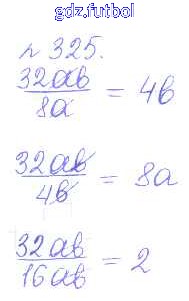 gdz.futbol
№ 325.
32ab/8a = 4b
32ab/4b = 8a
32ab/16ab = 2